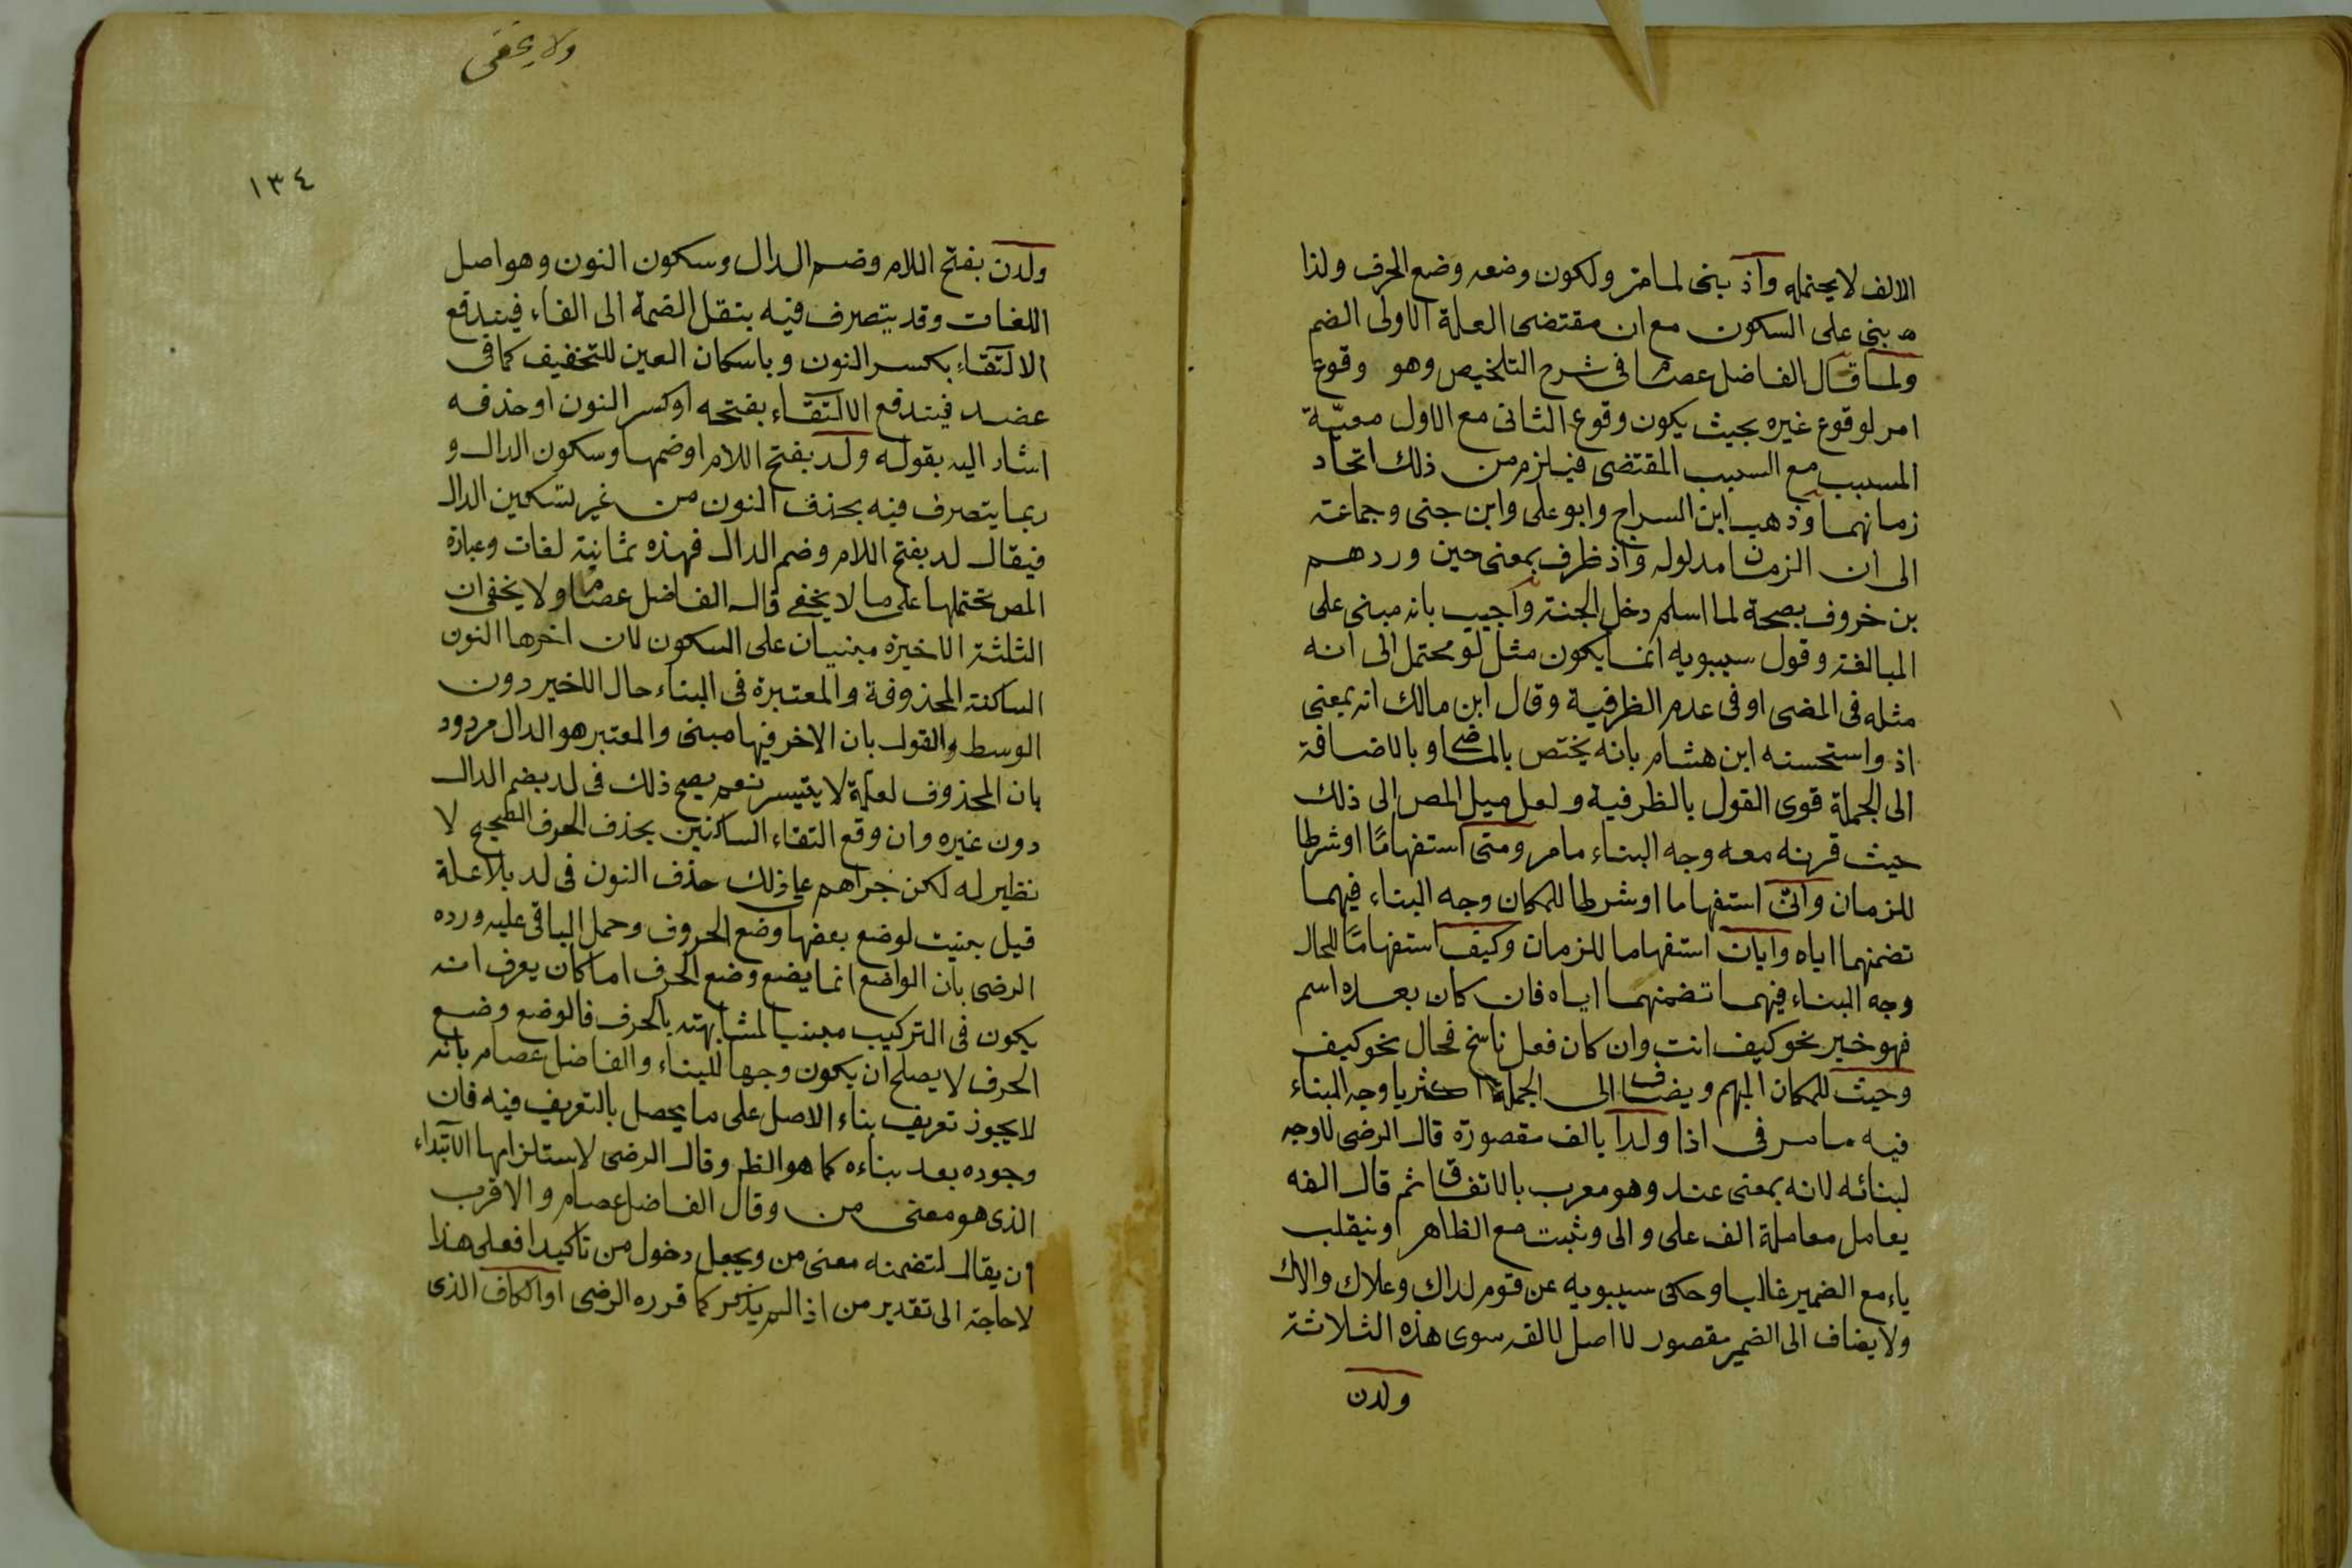 الالف لا يحتمله واذ بنى لما مر ولكون وضعه وضع الحرف ولذا
بنى على السكون مع ان مقتضى العلة الاولى الضم
ولما قال الفاضل عصام فى شرح التلخيص وهو وقوع
امر لوقوع غيره بحيث يكون وقوع الثانى مع الاول معيّة
المسبب مع السبب المقتضى فيلزم من ذلك اتحاد
زمانهما وذهب ابن السراج وابو على وابن جنى وجماعة
الى ان الزمان مدلوله واذ ظرف بمعنى حين وردهم
بن خروف بصحة لما اسلم دخل الجنة واجيب بانه مبنى على
المبالغة وقول سيبويه انما يكون مثل لو محتمل الى انه
مثله فى المضى او فى عدم الظرفية وقال ابن مالك انه بمعنى
اذ واستحسنه ابن هشام بانه يختص بالماضى او بالاضافة
الى الجملة قوى القول بالظرفية ولعل ميل المص الى ذلك
حيث قرنه معه وجه البناء ما مر ومتى استفهامًا او شرطا
للزمان وانّى استفهاما او شرطا للمكان وجه البناء فيهما
تضمنهما اياه وايان استفهاما للزمان وكيف استفهامًا للحال
وجه البناء فيهما تضمنهما اياه فان كان بعده اسم
فهو خبر نحو كيف انت وان كان فعل ناسخ فحال نحو كيف
وحيث للمكان المبهم ويضاف الى الجملة اكثريا وجه البناء
فيه ما مر فى اذا ولدا بالف مقصورة قال الرضى لا وجه
لبنائه لانه بمعنى عند وهو معرب بالاتفاق ثم قال الفه
يعامل معاملة الف على والى وثبت مع الظاهر او ينقلب
ياء مع الضمير غالبا وحكى سيبويه عن قوم لداك وعلاك والاك
ولا يضاف الى الضمير مقصور لا اصل لالفه سوى هذه الثلاثة
ولدن
ولا يخفى
١٣٤
ولدن بفتح اللام وضم الدال وسكون النون وهو اصل
اللغات وقد يتصرف فيه بنقل الضمة الى الفاء فيندفع
الالتقاء بكسر النون وباسكان العين للتخفيف كما فى
عضد فيندفع الالتقاء بفتحه او كسر النون او حذفه
اشار اليه بقوله ولد بفتح اللام او ضمها وسكون الدال و
ربما يتصرف فيه بحذف النون من غير تسكين الدال
فيقال لد بفتح اللام وضم الدال فهذه ثمانية لغات وعبارة
المص تحتملها على ما لا يخفى قال الفاضل عصام ولا يخفى ان
الثلثة الاخيرة مبنيان على السكون لان اخرها النون
الساكنة المحذوفة والمعتبرة فى البناء حال الاخير دون
الوسط والقول بان الاخر فيها مبنى والمعتبر هو الدال مردود
بان المحذوف لعلة لا يتيسر نعم يصح ذلك فى لد بضم الدال
دون غيره وان وقع التقاء الساكنين بحذف الحرف الصحيح لا
نظير له لكن جراهم على ذلك حذف النون فى لد بلا علة
قيل بنيت لوضع بعضها وضع الحروف وحمل الباقى عليه ورده
الرضى بان الواضع انما يضع وضع الحرف اما كان يعرف انه
يكون فى التركيب مبنيا لمشابهته بالحرف فالوضع وضع
الحرف لا يصلح ان يكون وجها للبناء والفاضل عصام بانه
لا يجوز تعريف بناء الاصل على ما يحصل بالتعريف فيه فان
وجوده بعد بناءه كما هو الظ وقال الرضى لاستلزامها الابتداء
الذى هو معنى من وقال الفاضل عصام والاقرب
ان يقال لتضمنه معنى من ويجعل دخول من تاكيدا فعلى هذا
لا حاجة الى تقدير من اذا لم يذكر كما قرره الرضى او الكاف الذى